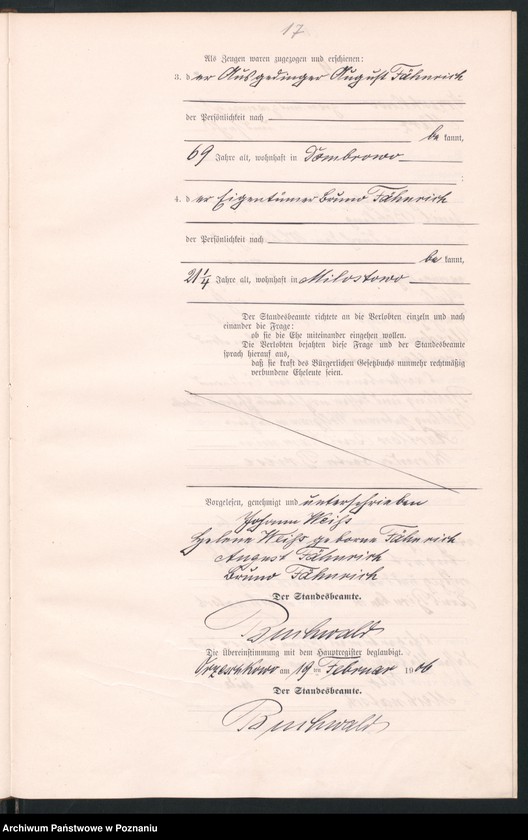 17
Als Zeugen waren zugezogen und erschienen:
3. der Ausgedinger August Fähnrich
der Persönlichkeit nach
bekannt,
69 Jahre alt, wohnhaft in Dombrowo
;
4. der Eigentümer Bruno Fähnrich
der Persönlichkeit nach
bekannt,
21 1/4 Jahre alt, wohnhaft in Milostowo
Der Standesbeamte richtete an die Verlobten einzeln und nach
einander die Frage:
ob sie die Ehe miteinander eingehen wollen.
Die Verlobten bejahten diese Frage und der Standesbeamte
sprach hierauf aus,
daß sie kraft des Bürgerlichen Gesetzbuchs nunmehr rechtmäßig
verbundene Eheleute seien.
Vorgelesen, genehmigt und unterschrieben
Johann Weiß
Helene Weiß geborne Fähnrich
August Fähnrich
Bruno Fähnrich
Der Standesbeamte.
Buchwald
Die Übereinstimmung mit dem Hauptregister beglaubigt.
Orzeschkowo am 19 ten Februar 1906
Der Standesbeamte.
Buchwald
Archiwum Państwowe w Poznaniu